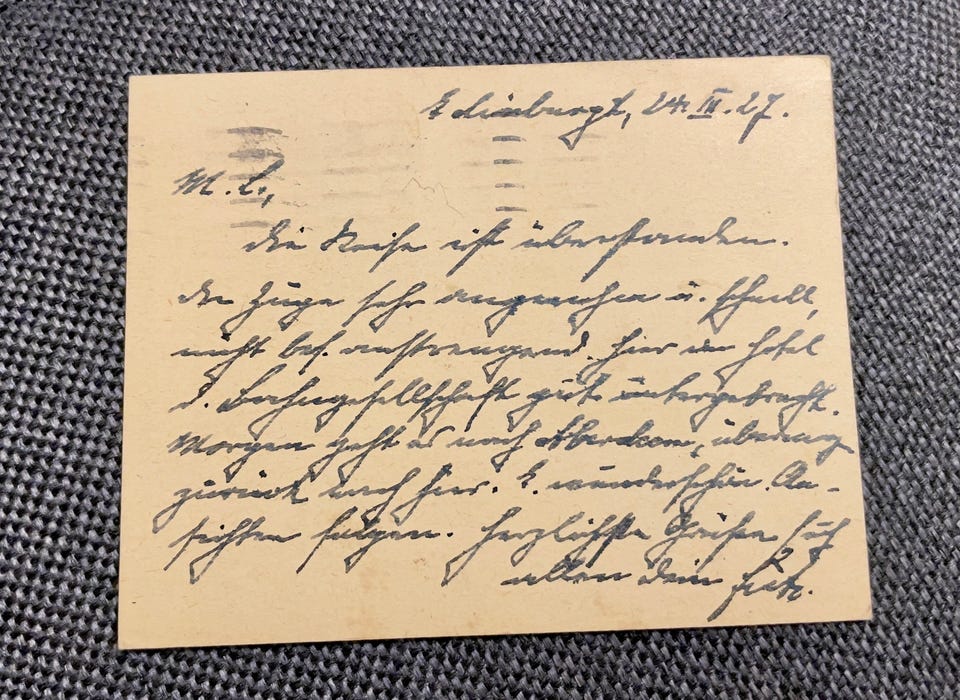 Edinburgh, 24. III. 27.
M. L.,
die Reise ist überstanden.
Die Züge sehr angenehm u. schnell,
nicht bes. anstrengend. Hier im Hotel
d. Bahngesellschaft gut untergebracht.
Morgen geht es nach Aberdeen, überm.
zurück nach hier. E. wunderschön. An-
sichten folgen. Herzlichste Grüße Euch
allen Dein Fritz.